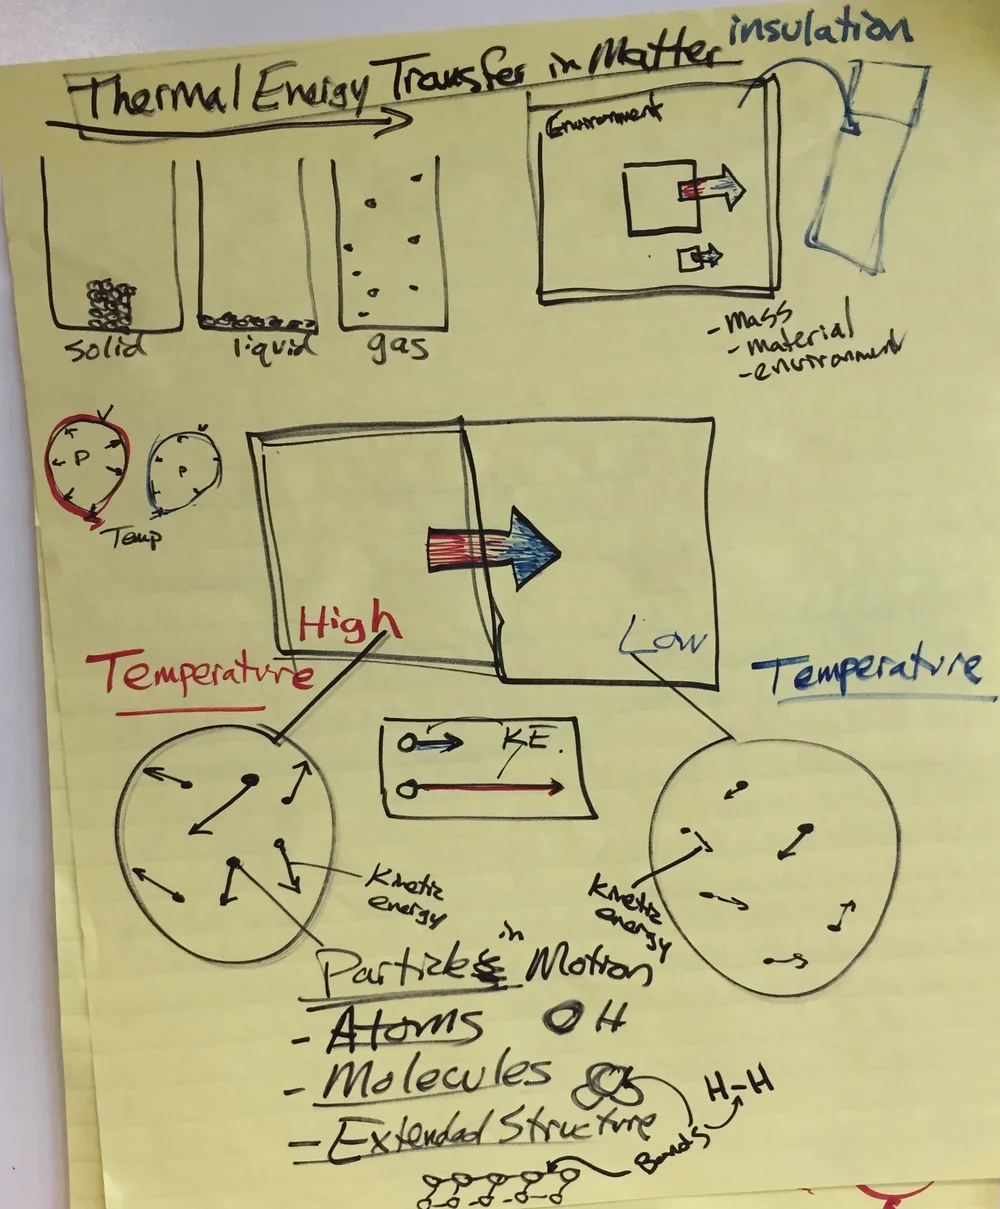 Thermal Energy Transfer in Matter
insulation
Environment
solid
liquid
gas
- mass
- material
- environment
V
P
V
P
Temp
High
Low
Temperature
Temperature
K.E.
Kinetic
energy
Kinetic
energy
Particles in Motion
- Atoms H
- Molecules
H-H
- Extended Structure
Bonds